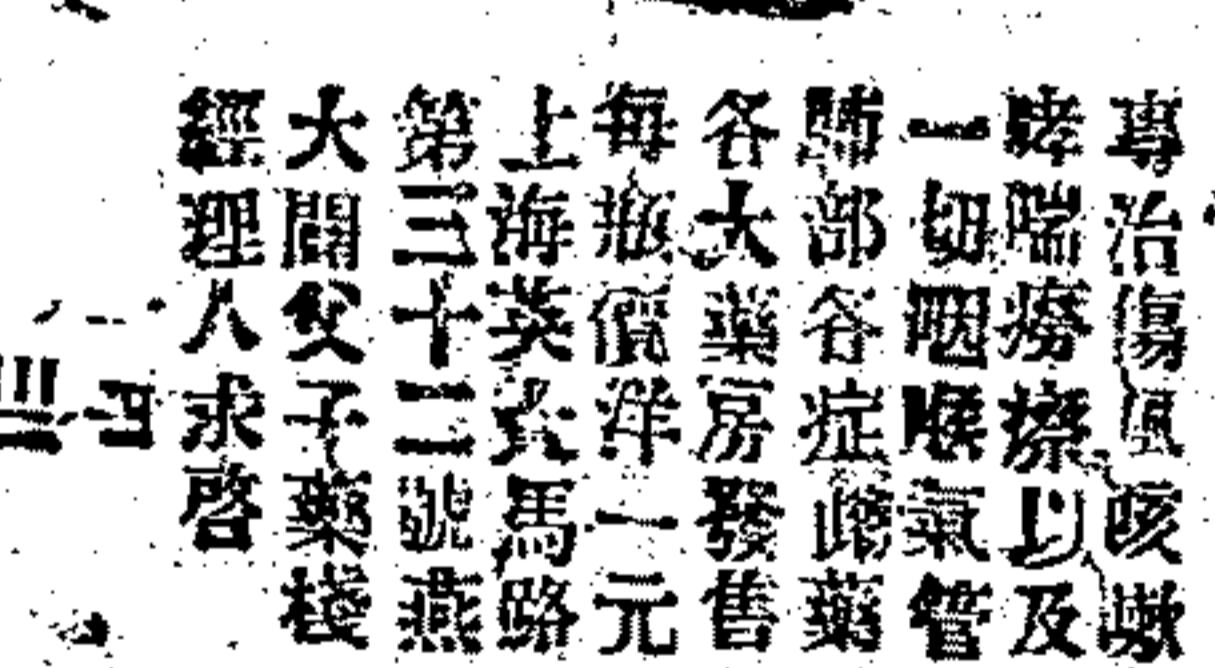 專治傷風咳嗽
哮喘癆瘵以及
一切咽喉氣管
肺部各症此藥
各大藥房發售
每瓶價洋一元
上海英大馬路
第三十二號燕
大闊父子藥棧
經理人求啓